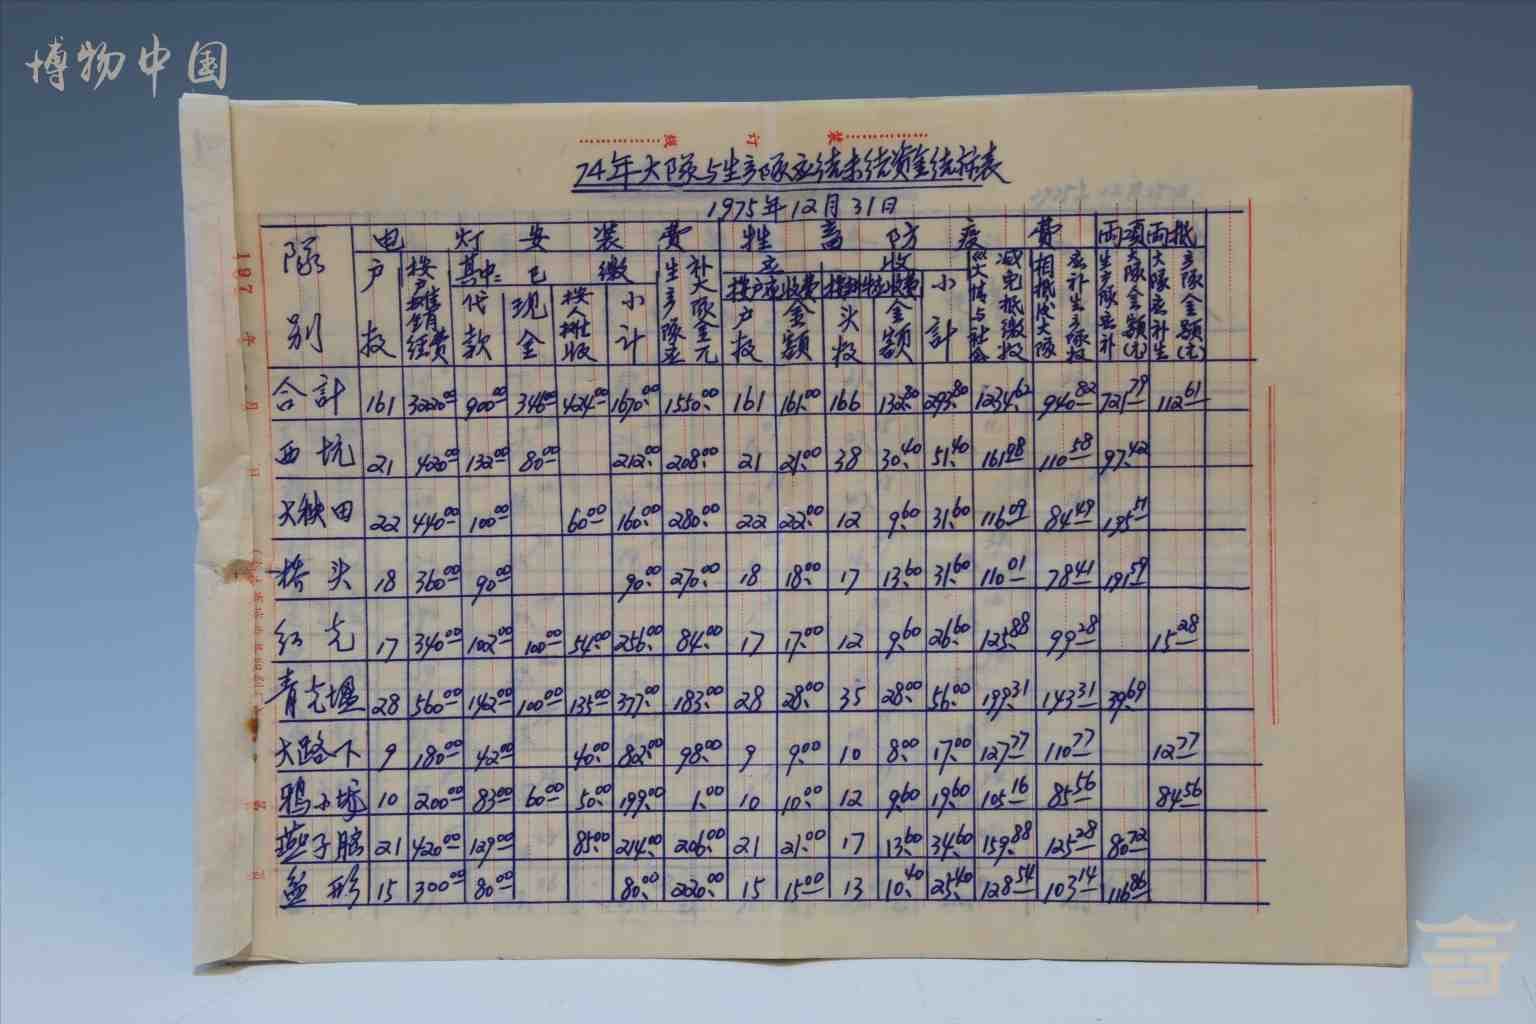 博物中国
装 订 线
74年大隊与生产隊应结未结資金结算表
1975年12月31日
197 年 月 日
隊别 电灯安装费 牲畜防疫费 両項両抵
户 按户 其中:已缴 生产隊应补大隊金元 应收 减完抵缴 相抵 应补生产隊 生产隊应补大隊金額(元) 大隊应补生产隊金額(元)
代款 现金 按人 小计 按户应收费 小計
户 金額 头 金額
合計 161 3220.00 900.00 346.00 424.00 1670.00 1550.00 161 161.00 166 132.80 293.80 1234.62 940.82 721.79 112.61
西坑 21 420.00 132.00 80.00 212.00 208.00 21 21.00 38 30.40 51.40 161.98 110.58 97.42
大秧田 22 440.00 100.00 60.00 160.00 280.00 22 22.00 12 9.60 31.60 116.09 84.49 195.51
桥头 18 360.00 90.00 90.00 270.00 18 18.00 17 13.60 31.60 110.01 78.41 191.59
红光 17 340.00 102.00 100.00 54.00 256.00 84.00 17 17.00 12 9.60 26.60 125.88 99.28 15.28
青光堰 28 560.00 142.00 100.00 135.00 377.00 183.00 28 28.00 35 28.00 56.00 199.31 143.31 39.69
大路下 9 180.00 42.00 40.00 82.00 98.00 9 9.00 10 8.00 17.00 127.77 110.77 12.77
鸦小坑 10 200.00 83.00 60.00 50.00 199.00 1.00 10 10.00 12 9.60 19.60 105.16 85.56 84.56
燕子 21 420.00 129.00 85.00 214.00 206.00 21 21.00 17 13.60 34.60 159.88 125.28 80.72
盆形 15 300.00 80.00 80.00 220.00 15 15.00 13 10.40 25.40 128.54 103.14 116.86